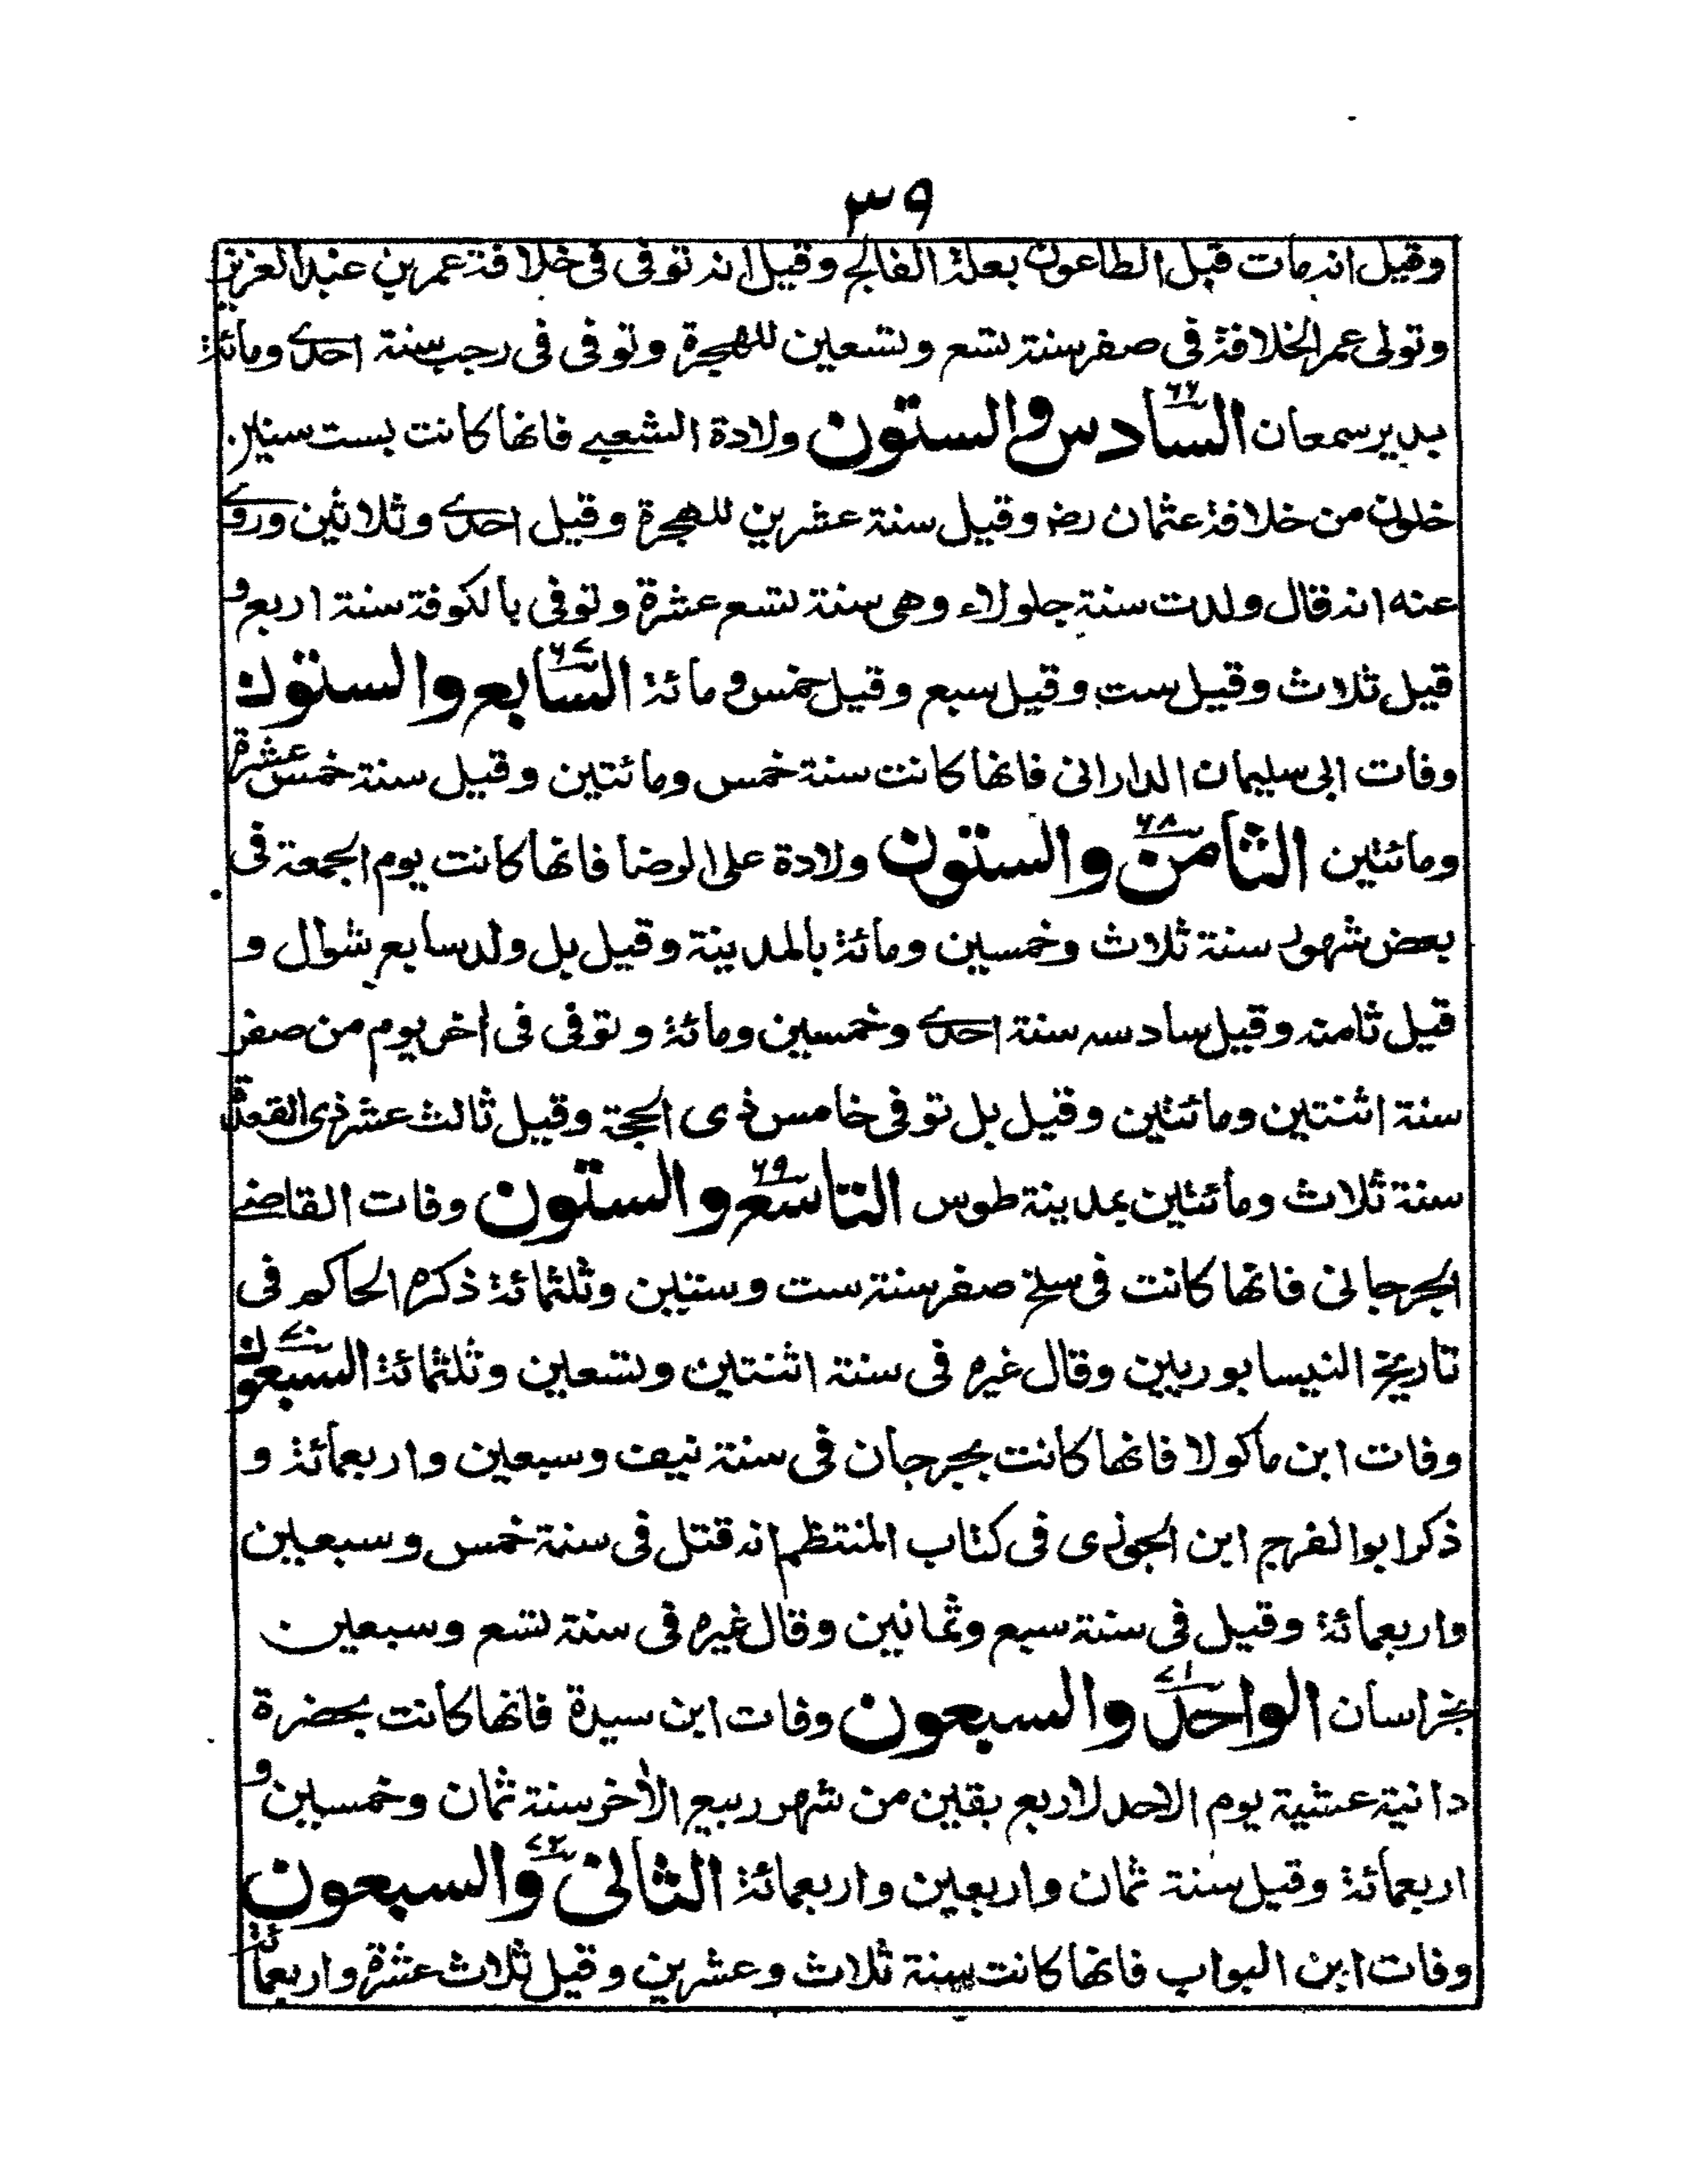 ٣٩
وقيل انه مات قبل الطاعون بعلة الفالج وقيل انه توفى فى خلافة عمر بن عبد العزيز
وتولى عمر الخلافة فى صفر سنة تسع وتسعين للهجرة وتوفى فى رجب سنة احدى ومائة
بدير سمعان السادس والستون ٦٦ ولادة الشعبى فانها كانت بست سنين
خلون من خلافة عثمان رضـ وقيل سنة عشرين للهجرة وقيل احدى وثلاثين وروى
عنه انه قال ولدت سنة جلولاء وهى سنة تسع عشرة وتوفى بالكوفة سنة اربع و
قيل ثلاث وقيل ست وقيل سبع وقيل خمس ومائة السابع والستون ٦٧
وفات ابى سليمان الدارانى فانها كانت سنة خمس ومائتين وقيل سنة خمس عشرة
ومائتين الثامن والستون ٦٨ ولادة على الرضا فانها كانت يوم الجمعة فى
بعض شهور سنة ثلاث وخمسين ومائة بالمدينة وقيل بل ولد سابع شوال و
قيل ثامنه وقيل سادسه سنة احدى وخمسين ومائة وتوفى فى اخر يوم من صفر
سنة اثنتين ومائتين وقيل بل توفى خامس ذى الحجة وقيل ثالث عشر ذى القعدة
سنة ثلاث ومائتين بمدينة طوس التاسع والستون ٦٩ وفات القاضى
الجرجانى فانها كانت فى سلخ صفر سنة ست وستين وثلثمائة ذكره الحاكم فى
تاريخ النيسابوريين وقال غيره فى سنة اثنتين وتسعين وثلثمائة السبعون ٧٠
وفات ابن ماكولا فانها كانت بجرجان فى سنة نيف وسبعين واربعمائة و
ذكر ابو الفرج ابن الجوزى فى كتاب المنتظم انه قتل فى سنة خمس وسبعين
واربعمائة وقيل فى سنة سبع وثمانين وقال غيره فى سنة تسع وسبعين
بخراسان الواحد والسبعون ٧١ وفات ابن سيدة فانها كانت بحضرة
دانية عشية يوم الاحد لاربع بقين من شهر ربيع الاخر سنة ثمان وخمسين و
اربعمائة وقيل سنة ثمان واربعين واربعمائة الثانى والسبعون ٧٢
وفات ابن البواب فانها كانت سنة ثلاث وعشرين وقيل ثلاث عشرة واربعمائة